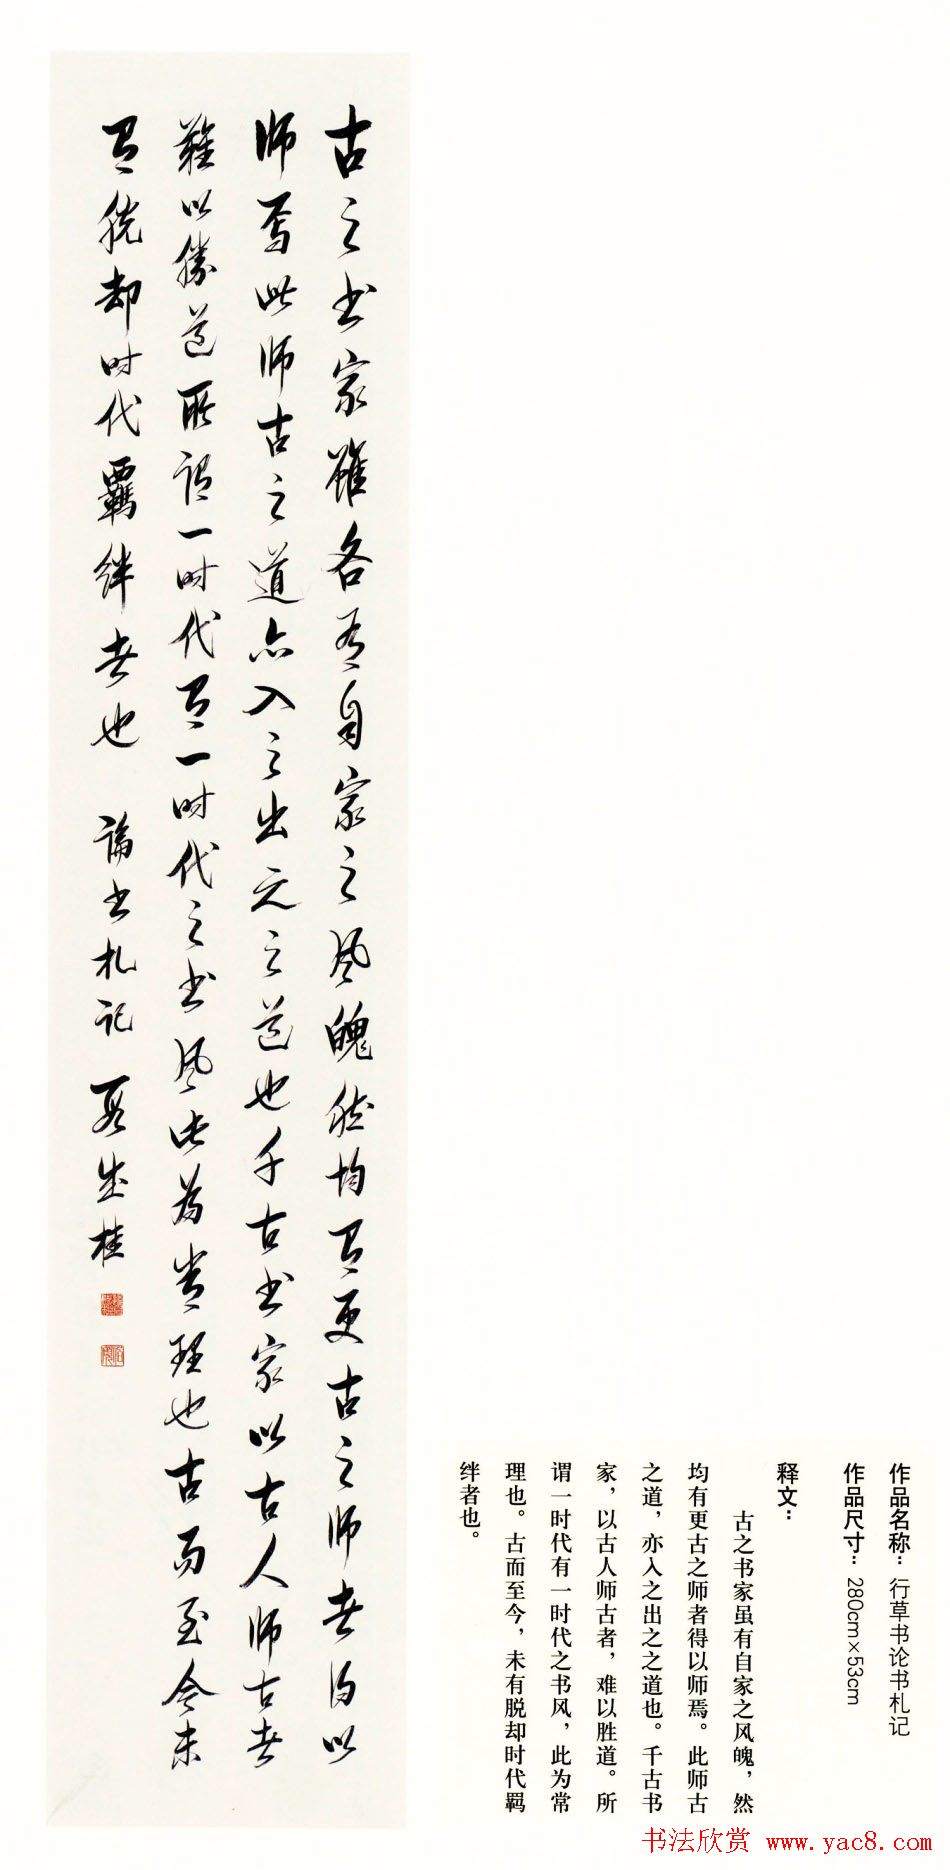 古之书家雖各有自家之风魄然均有更古之师者得以
师焉此师古之道亦入之出之之道也千古书家以古人师古者
難以勝道所谓一时代有一时代之书风此为常理也古而至今未
有脱却时代羁绊者也 論书札记
作品名称：行草书论书札记
作品尺寸：280cm×53cm
释文：
古之书家虽有自家之风魄，然
均有更古之师者得以师焉。此师古
之道，亦入之出之之道也。千古书
家，以古人师古者，难以胜道。所
谓一时代有一时代之书风，此为常
理也。古而至今，未有脱却时代羁
绊者也。
书法欣赏 www.yac8.com